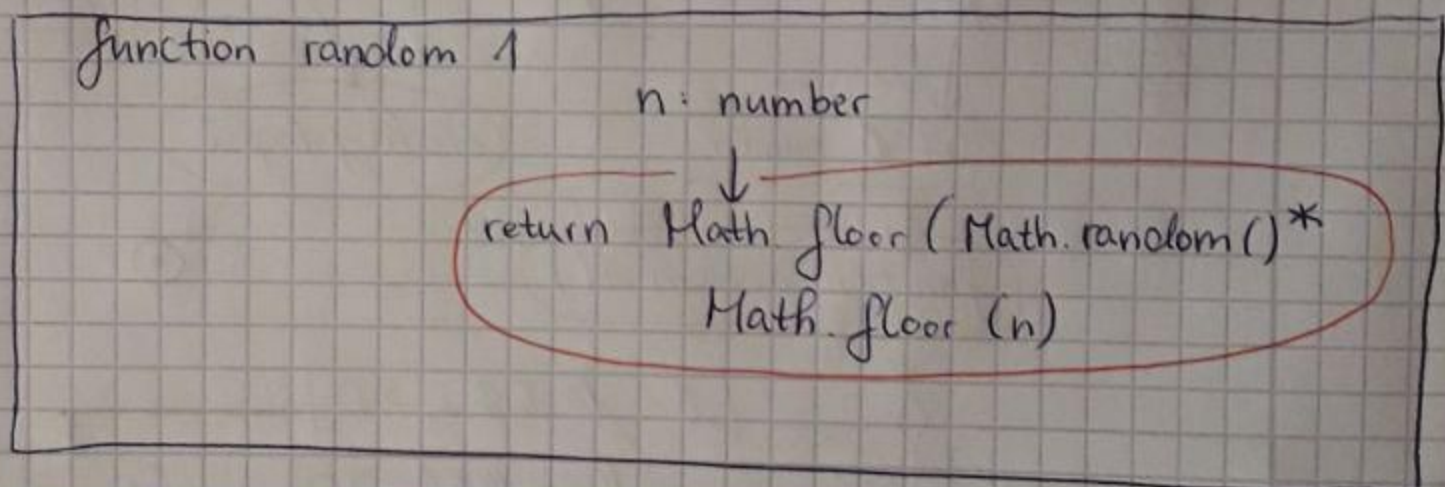 function random 1
n: number
return Math floor (Math.random()*
Math.floor (n)